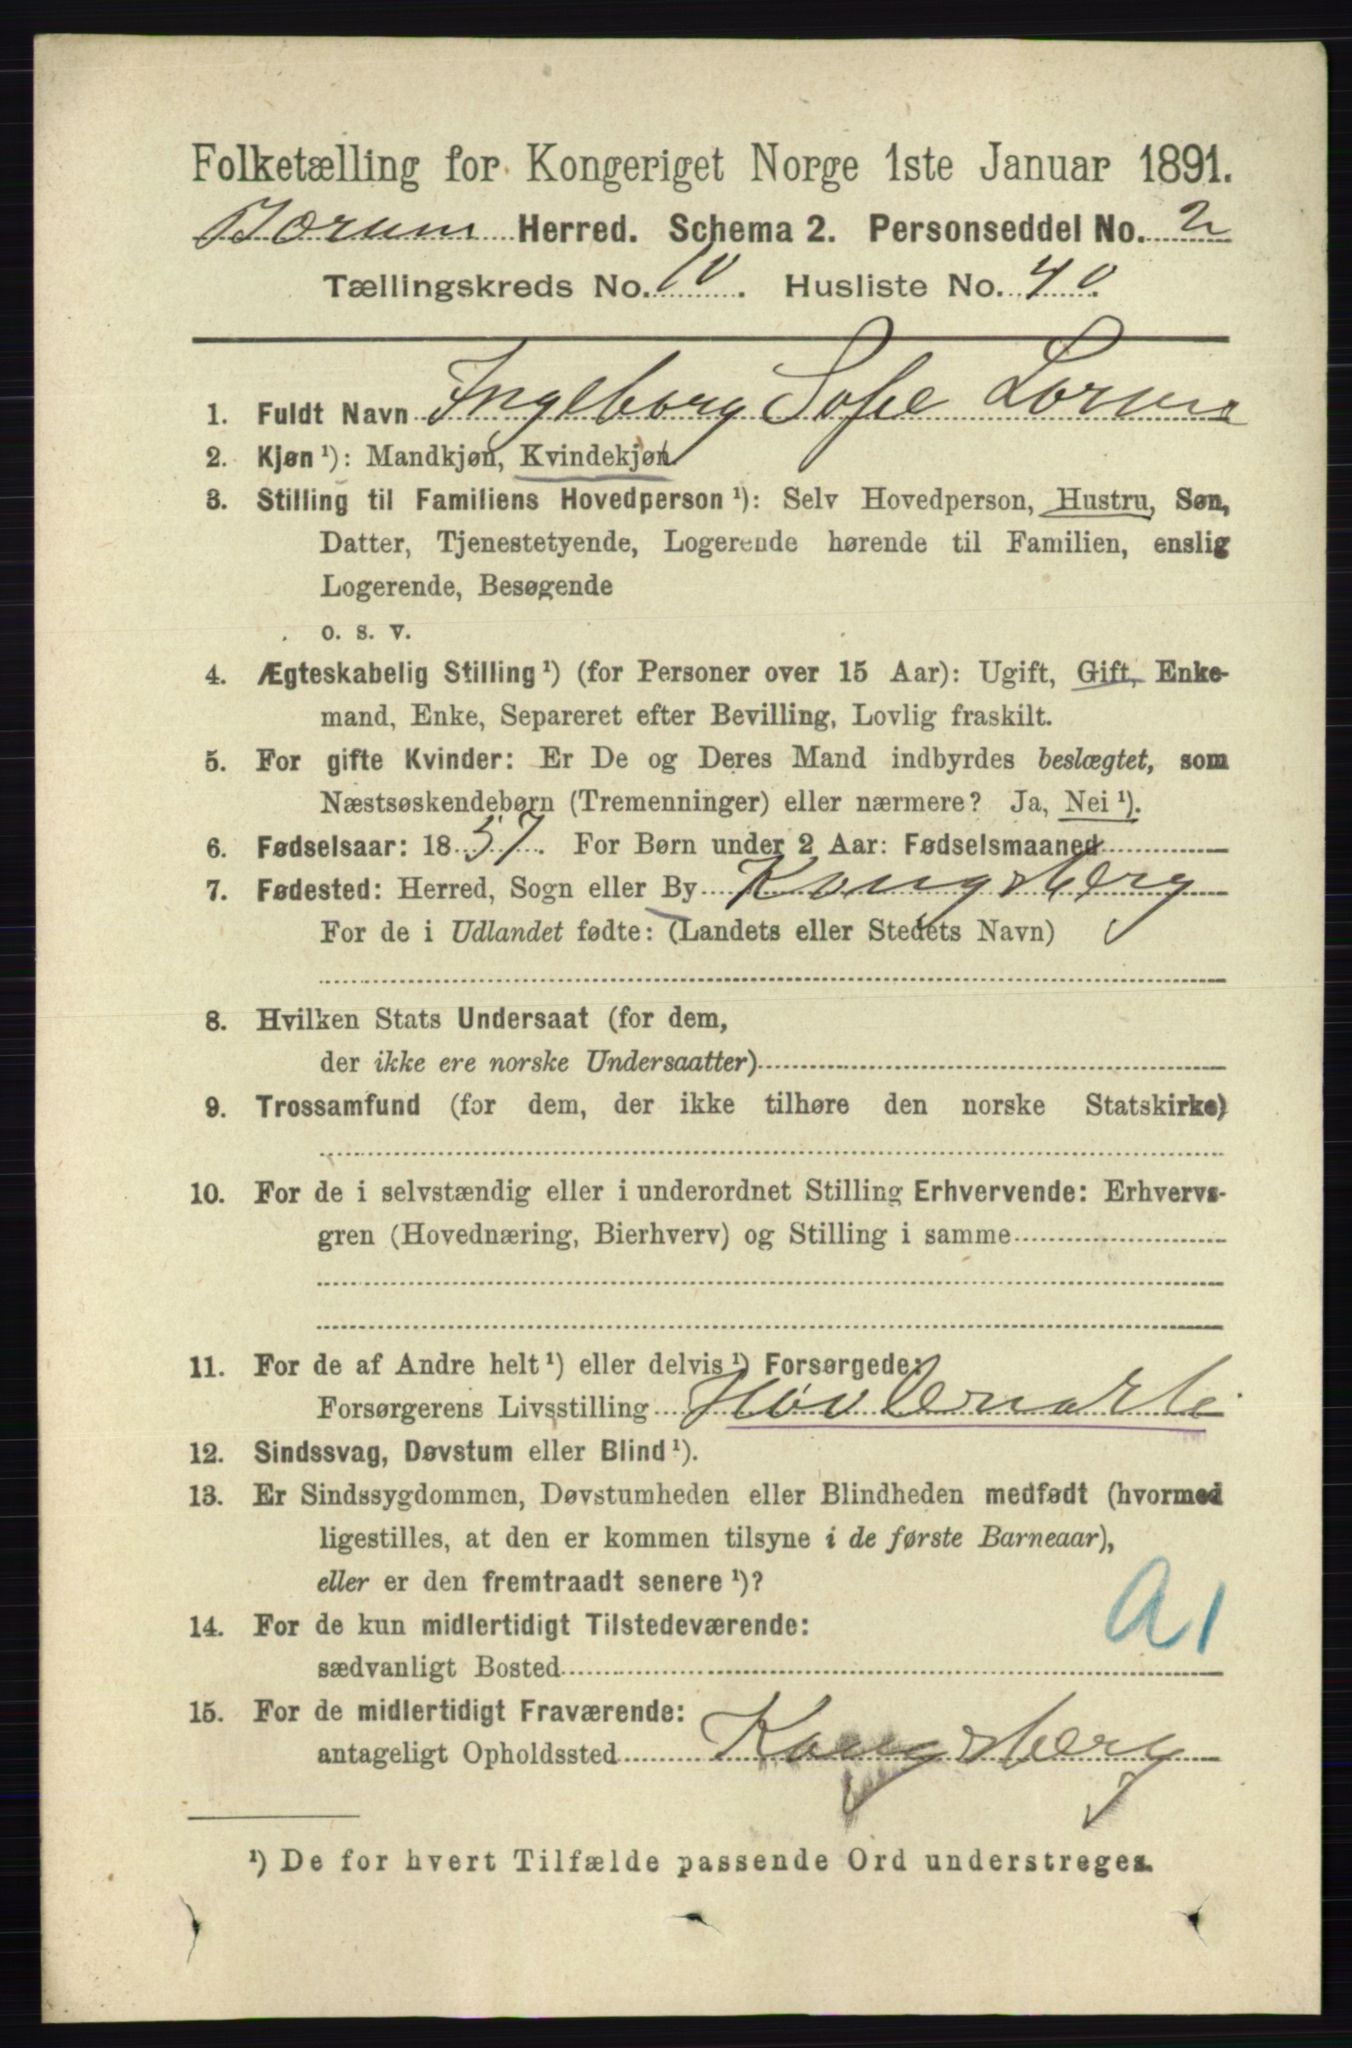 Folketælling for Kongeriget Norge 1ste Januar 1891.
Bærum Herred. Schema 2. Personseddel No. 2
Tællingskreds No. 10. Husliste No. 40
1. Fuldt Navn Ingeborg Sofie
2. Kjøn ¹): Mandkjøn, Kvindekjøn.
3. Stilling til Familiens Hovedperson ¹): Selv Hovedperson, Hustru, Søn,
Datter, Tjenestetyende, Logerende hørende til Familien, enslig
Logerende, Besøgende
o. s. v.
4. Ægteskabelig Stilling ¹) (for Personer over 15 Aar): Ugift, Gift, Enke-
mand, Enke, Separeret efter Bevilling, Lovlig fraskilt.
5. For gifte Kvinder: Er De og Deres Mand indbyrdes beslægtet, som
Næstsøskendebørn (Tremenninger) eller nærmere? Ja, Nei ¹).
6. Fødselsaar: 1857. For Børn under 2 Aar: Fødselsmaaned
7. Fødested: Herred, Sogn eller By Kongsberg
For de i Udlandet fødte: (Landets eller Stedets Navn)
8. Hvilken Stats Undersaat (for dem,
der ikke ere norske Undersaatter)
9. Trossamfund (for dem, der ikke tilhøre den norske Statskirke)
10. For de i selvstændig eller i underordnet Stilling Erhvervende: Erhvervs-
gren (Hovednæring, Bierhverv) og Stilling i samme
11. For de af Andre helt ¹) eller delvis ¹) Forsørgede:
Forsørgerens Livsstilling Høvlerarb.
12. Sindssvag, Døvstum eller Blind ¹).
13. Er Sindssygdommen, Døvstumheden eller Blindheden medfødt (hvormed
ligestilles, at den er kommen tilsyne i de første Barneaar),
eller er den fremtraadt senere ¹)?
A1
14. For de kun midlertidigt Tilstedeværende:
sædvanligt Bosted
15. For de midlertidigt Fraværende:
antageligt Opholdssted Kongsberg
¹) De for hvert Tilfælde passende Ord understreges.